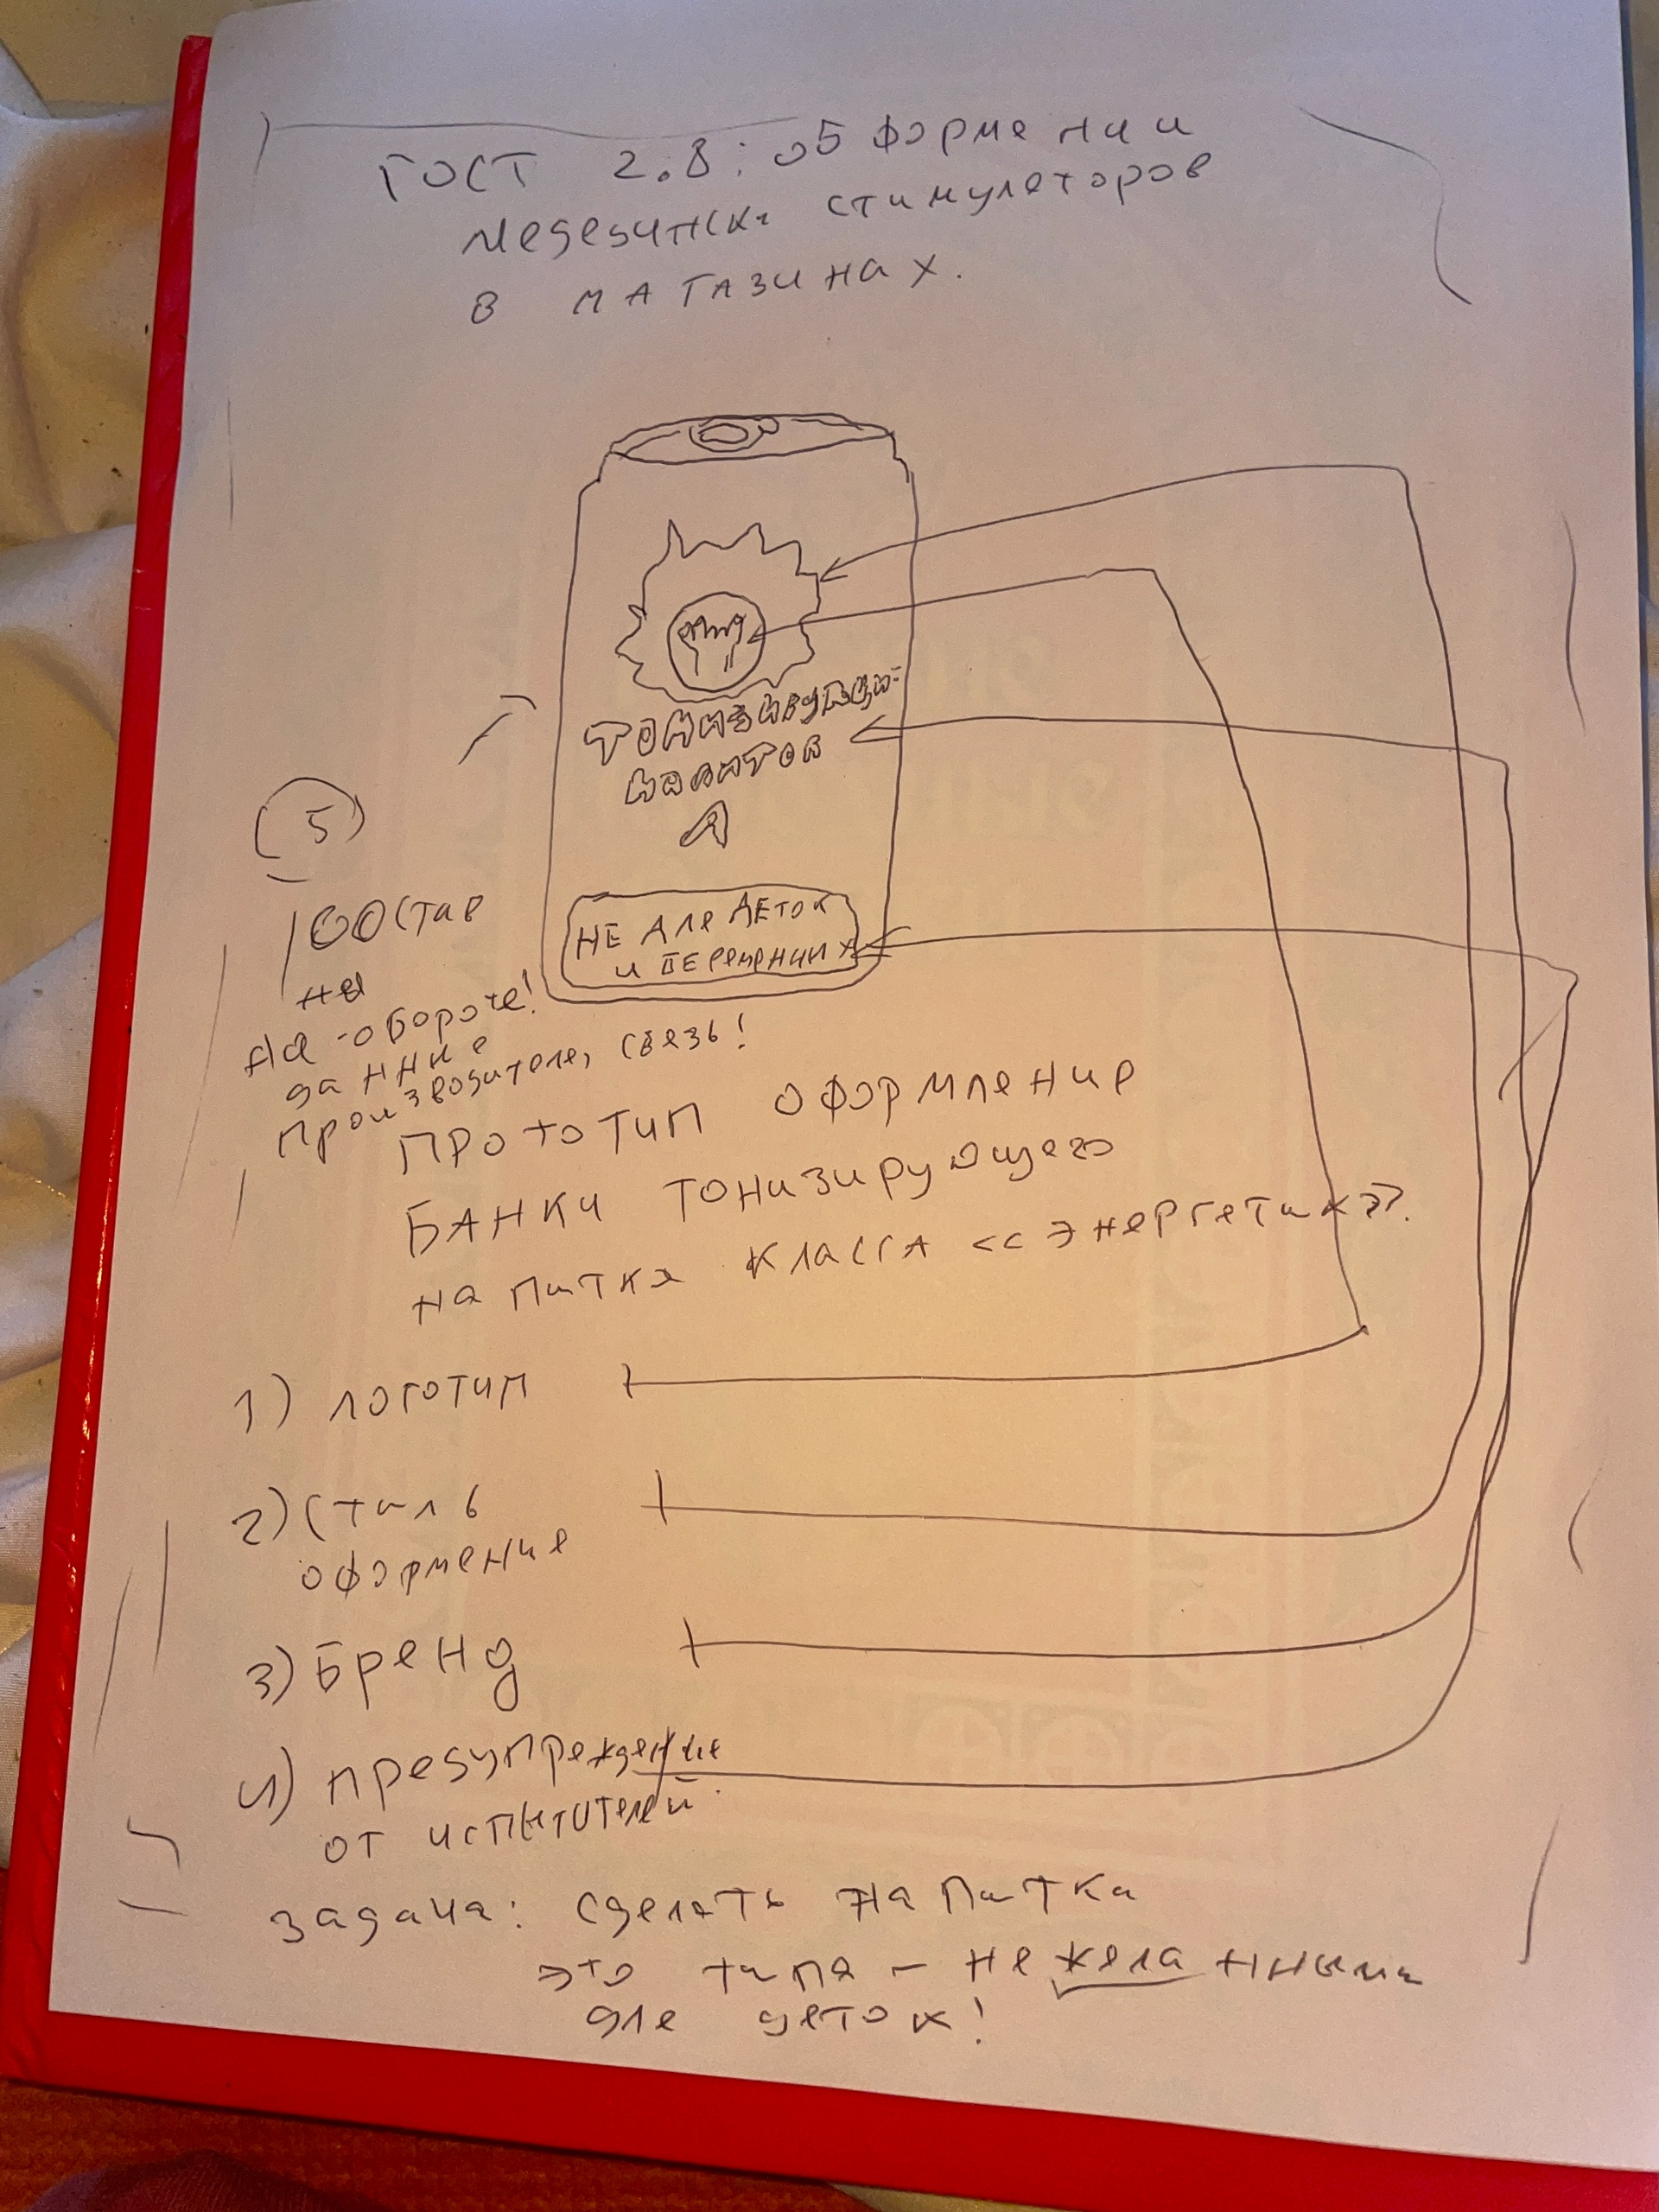 ГОСТ 2.8: об форме нии
медецински стимулеторов
в магазинах.
Тонизирующи-
напиток
А
НЕ ДЛЯ ДЕТОК
и БЕРЕМЕННЫХ
(5)
состав
на-обороте!
данные
производителе, связь!
Прототип оформление
Банки тонизирующего
напитка класса <<энергетик>>.
1) логотип
2) стиль
оформение
3) Бренд
4) предупреждение
от
задача: сделать напитки
это типа - не желанными
для деток!